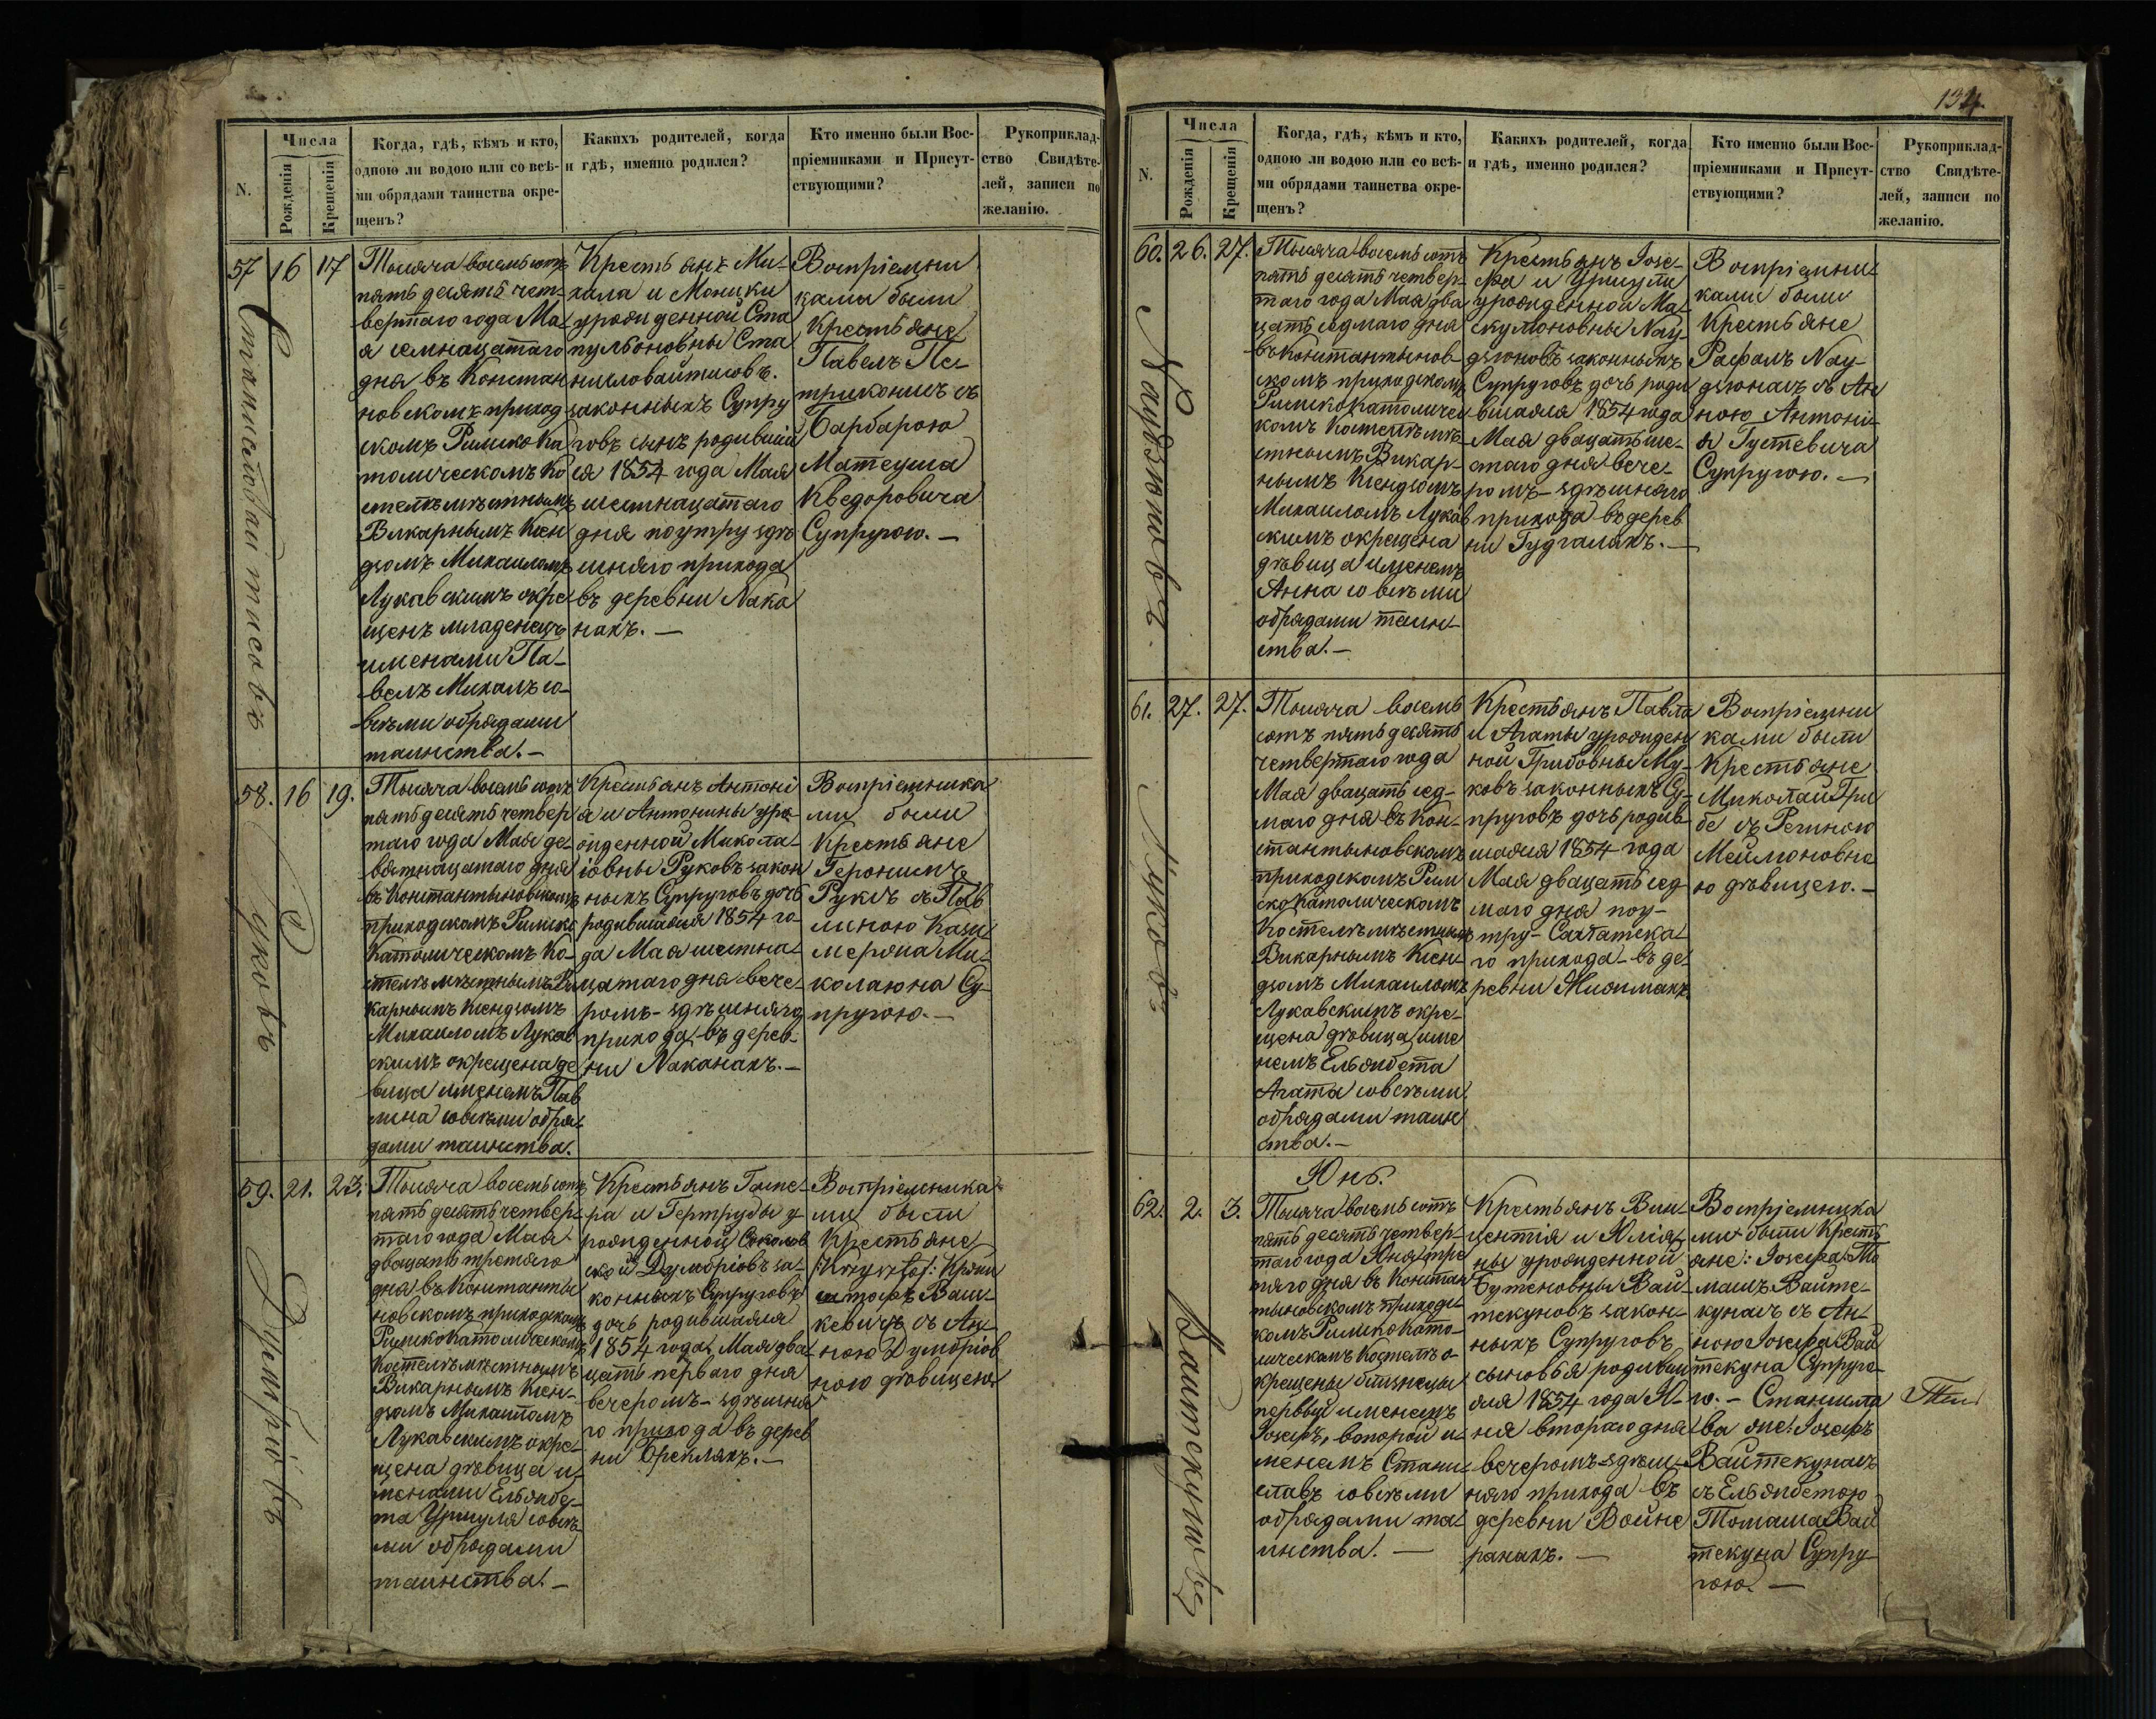 N.
Числа
Рожденія
Крещенія
Когда, гдѣ, кѣмъ и кто,
одною ли водою или со всѣ-
ми обрядами таинства окре-
щенъ?
Какихъ родителей, когда
и гдѣ, именно родился?
Кто именно были Вос-
пріемниками и Присут-
ствующими?
Рукоприклад-
ство Свидѣте-
лей, записи по
желанію.
57
16
17
Тысяча восемь сотъ
пять десять чет-
вертаго года Ма-
я семнацатаго
дня въ Констан
новскомъ приход
скомъ Римско Ка
толическомъ Ко
стелѣ мѣстнымъ
Викарнымъ Ксен
дзомъ Михаиломъ
Лукавскимъ окре-
щенъ младенецъ
именами Па-
велъ Михалъ со-
всѣми обрядами
таинства. —
Крестьянъ Ми-
хала и Моники
урожденной Ста
пульоновны Ста
нисловайтисовъ.
законныхъ Супру
говъ сынъ родившій
ся 1854 года Мая
шестнацатаго
дня поутру здѣ
шняго прихода
въ деревни Лака
нахъ. —
Воспріемни
ками были
Крестьяне
Павелъ Пе-
триконисъ съ
Барбарою
Матеуша
Кведоровича
Супругою. —
58.
16
19.
Тысяча восемь сотъ
пять десять четвер
таго года Мая де-
вятнацатаго дня
въ Константыновскомъ
приходскомъ Римско
Католическомъ Ко-
стелѣ мѣстнымъ Ви
карнымъ Ксендзомъ
Михаиломъ Лукав
скимъ окрещена дѣ
вица именемъ Пав
лина совсѣми обря-
дами таинства.
Крестьянъ Антоні
я и Антонины уро-
жденной Микола-
іовны Руковъ закон
ныхъ Супруговъ дочь
родившаяся 1854 го-
да Мая шестна-
цатаго дня вече-
ромъ- здѣшняго
прихода въ дерев-
ни Лаканахъ. —
Воспріемника
ми были
Крестьяне
Геронимъ
Рукисъ съ Пав
линою Кази
меряна Ми-
колаюна Су-
пругою. —
59.
21.
23.
Тысяча восемь сотъ
пять десять четвер-
таго года Мая
двацать третяго
дня въ Константы
новскомъ приходскомъ
Римско Католическомъ
Костелѣ мѣстнымъ
Викарнымъ Ксен-
дзомъ Михаиломъ
Лукавскимъ окре-
щена дѣвица и-
менами Ельжбе-
та Уршуля совсѣ-
ми обрядами
таинства. —
Крестьянъ Гаспе-
ра и Гертруды у-
рожденной Соколов
ской Думбріовъ за-
конныхъ Супруговъ
дочь родившаяся
1854 года Мая два-
цать перваго дня
вечеромъ- здѣшня
го прихода въ дерев
ни Брекляхъ. —
Воспріемника-
ми были
Крестьяне
/:Krzysztof:/ Криш
штофъ Ваш-
кевичъ съ Ан-
ною Думбріов
ною дѣвицею.
Станиславайтисовъ
Руковъ
Думбріовъ
134.
N.
Числа
Рожденія
Крещенія
Когда, гдѣ, кѣмъ и кто,
одною ли водою или со всѣ-
ми обрядами таинства окре-
щенъ?
Какихъ родителей, когда
и гдѣ, именно родился?
Кто именно были Вос-
пріемниками и Присут-
ствующими?
Рукоприклад-
ство Свидѣте-
лей, записи по
желанію.
60.
26.
27.
Тысяча восемь сотъ
пять десять четвер-
таго года Мая два
цать седмаго дня
въ Константынов-
скомъ приходскомъ
Римско Католичес
комъ Костелѣ мѣ-
стнымъ Викар-
нымъ Ксендзомъ
Михаиломъ Лукав
скимъ окрещена
дѣвица именемъ
Анна со всѣми
обрядами таин-
ства. —
Крестьянъ Іозе-
фа и Уршули
урожденной Ма-
скулюновны Nау-
дзюновъ законныхъ
Супруговъ дочь роди
вшаяся 1854 года
Мая двацать ше-
стаго дня вече-
ромъ- здѣшняго
прихода въ дерев
ни Гудгаляхъ. —
Воспріемни-
ками были
Крестьяне
Рафалъ Nау-
дзюнасъ съ Ан
ною Антоні-
я Густевича
Супругою. —
61.
27.
27.
Тысяча восемь
сотъ пять десять
четвертаго года
Мая двацать сед-
маго дня въ Кон-
стантыновскомъ
приходскомъ Рим
ско Католическомъ
Костелѣ мѣстнымъ
Викарнымъ Ксен-
дзомъ Михаиломъ
Лукавскимъ окре-
щена дѣвица име
немъ Ельжбета
Агата со всѣми
обрядами таин
ства. —
Крестьянъ Павла
и Агаты урожден
ной Грибовны Му-
ковъ законныхъ Су-
пруговъ дочь родив-
шаяся 1854 года
Мая двацать сед
маго дня поу-
тру- Салатска-
го прихода- въ де-
ревни Мижимахъ
Воспріемни
ками были
Крестьяне
Миколай Гри
бе съ Региною
Меймоновно
ю дѣвицею. —
Юнь.
62.
2.
3.
Тысяча восемь сотъ
пять десять четвер-
таго года Юня тре
тяго дня въ Констан
тыновскомъ приходс
комъ Римско Като-
лическомъ Костелѣ о-
крещены близнецы
первый именемъ
Іозефъ, вопорой и-
менемъ Стани-
славъ совсѣми
обрядами та-
инства. —
Крестьянъ Вин-
центія и Юлія-
ны урожденной
Бутеновны Вай-
текуновъ закон-
ныхъ Супруговъ
сыновья родивші
яся 1854 года Ю-
ня втораго дня
вечеромъ- здѣш-
няго прихода въ
деревни Войне
ранахъ. —
Воспріемника
ми были Кресть
яне: Іозефа То
машъ Вайте-
кунасъ съ Ан-
ною Іозефа Вай
текуна Супруго-
ю. - Станисла
ва же: Іозефъ
Вайтекунасъ
съ Ельжбетою
Томаша Вай
текуна Супру-
гою. —
Nаудзюновъ
Муковъ
Вайтекуновъ